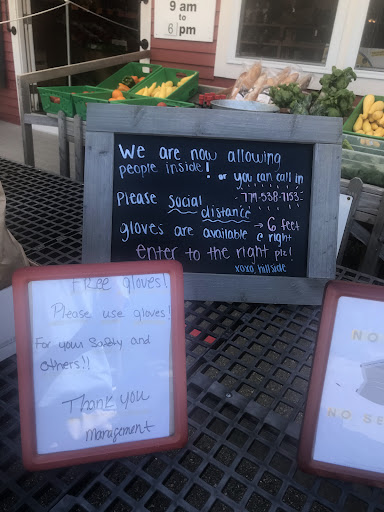 9 am
to
6 pm
We are now allowing
people inside! or you can call in
774-538-7153
Please social
distance → 6 feet
gloves are available @ right
enter to the right plz!
xoxo, hillside
FREE gloves!
Please use gloves!
For your Safty and
others!!
Thank you
management
NO
NO SE